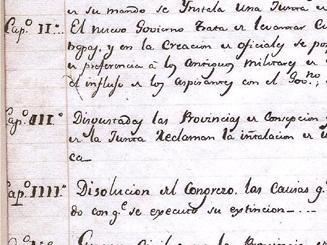 en su mando se Ynstala una Junta en
Cap.º II.º El nuevo Govierno trata en levantar
y en la Creacion en oficiales se
en preferencia a los antiguos militares en
el influjo en los aspirantes con el Gov.no;
Cap.º III.º Disgustadas las Provincias en Concepcion
en la Junta Reclaman la instalacion en
ca
Cap.º IIII.º Disolucion del Congreso. las causas q.e
do con q.e se executo su extincion